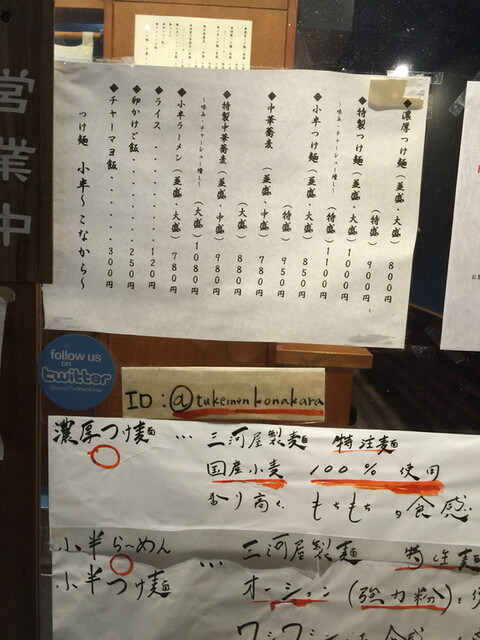 営業中
◆濃厚つけ麺(並盛・大盛) 800円
(特盛) 900円
◆特製つけ麺(並盛・大盛) 1000円
~味み・チャーシュー増し~ (特盛) 1100円
◆小半つけ麺(並盛・大盛) 850円
(特盛) 950円
◆中華蕎麦(並盛・中盛) 780円
(大盛) 880円
◆特製中華蕎麦(並盛・中盛) 980円
~味み・チャーシュー増し~ (大盛) 1080円
◆小半ラーメン(並盛・大盛) 780円
◆ライス・・・・・・・120円
◆卵かけご飯・・・・・・250円
◆チャーマヨ飯・・・・・・300円
つけ麺 小半~こなから~
follow us on
twitter
ID:@tukemenkonakara
濃厚つけ麺 … 三河屋製麺 特注麺
国産小麦 100% 使用
香り高く もちもちの食感
小半らーめん
小半つけ麺 … 三河屋製麺 特注麺
オーション(強力粉)を使
ワシワシ